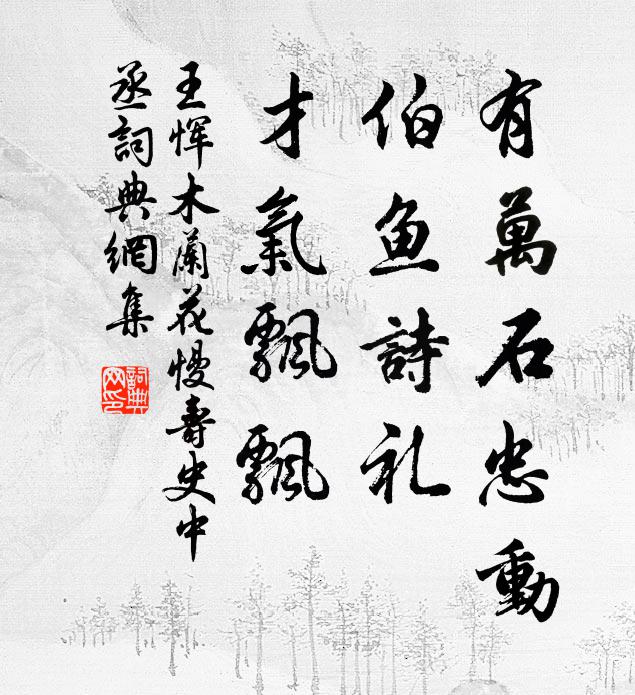 有萬石忠動
伯鱼詩礼
才氣飄飄
王恽木蘭花慢壽史中
丞詞典網集
詞典
网印